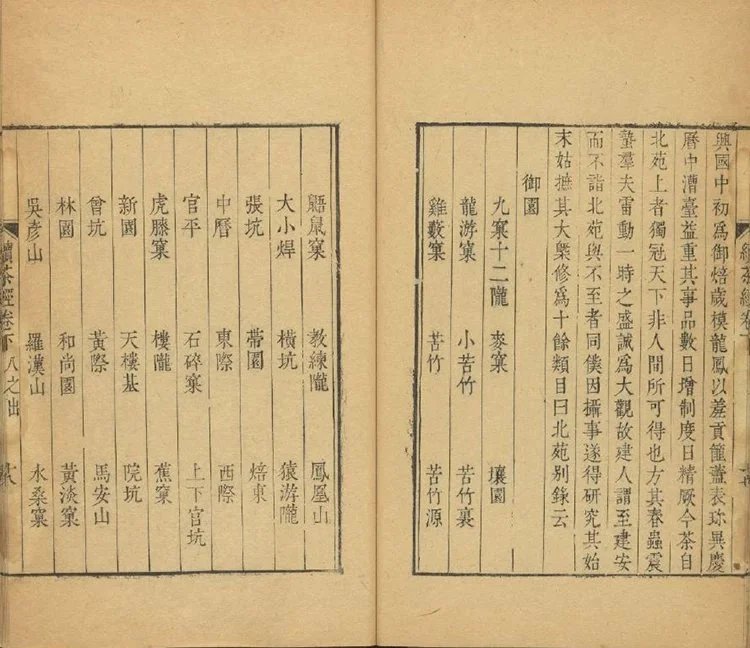 興國中初爲御焙歲模龍鳳以羞貢篚蓋表珍異慶
曆中漕臺益重其事品數日增制度日精厥今茶自
北苑上者獨冠天下非人間所可得也方其春蟲震
蟄羣夫雷動一時之盛誠爲大觀故建人謂至建安
而不詣北苑與不至者同僕因攝事遂得研究其始
末姑摭其大槩修爲十餘類目曰北苑別錄云
御園
九窠十二隴 麥窠 壤園
龍游窠 小苦竹 苦竹裏
雞藪窠 苦竹 苦竹源
鼯鼠窠 教練隴 鳳凰山
大小焊 橫坑 猿游隴
張坑 帶園 焙東
中曆 東際 西際
官平 石碎窠 上下官坑
虎膝窠 樓隴 蕉窠
新園 天樓基 院坑
曾坑 黃際 馬安山
林園 和尚園 黃淡窠
吳彥山 羅漢山 水桑窠
續茶經卷下 八之出